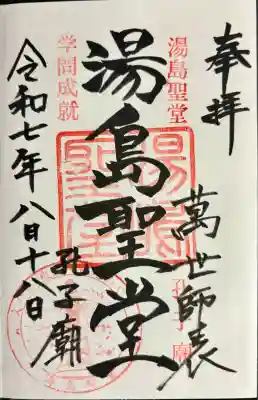 奉拝
湯島聖堂
萬世師表
孔子廟
湯島聖堂
学問成就
孔子廟
令和七年八日十八日